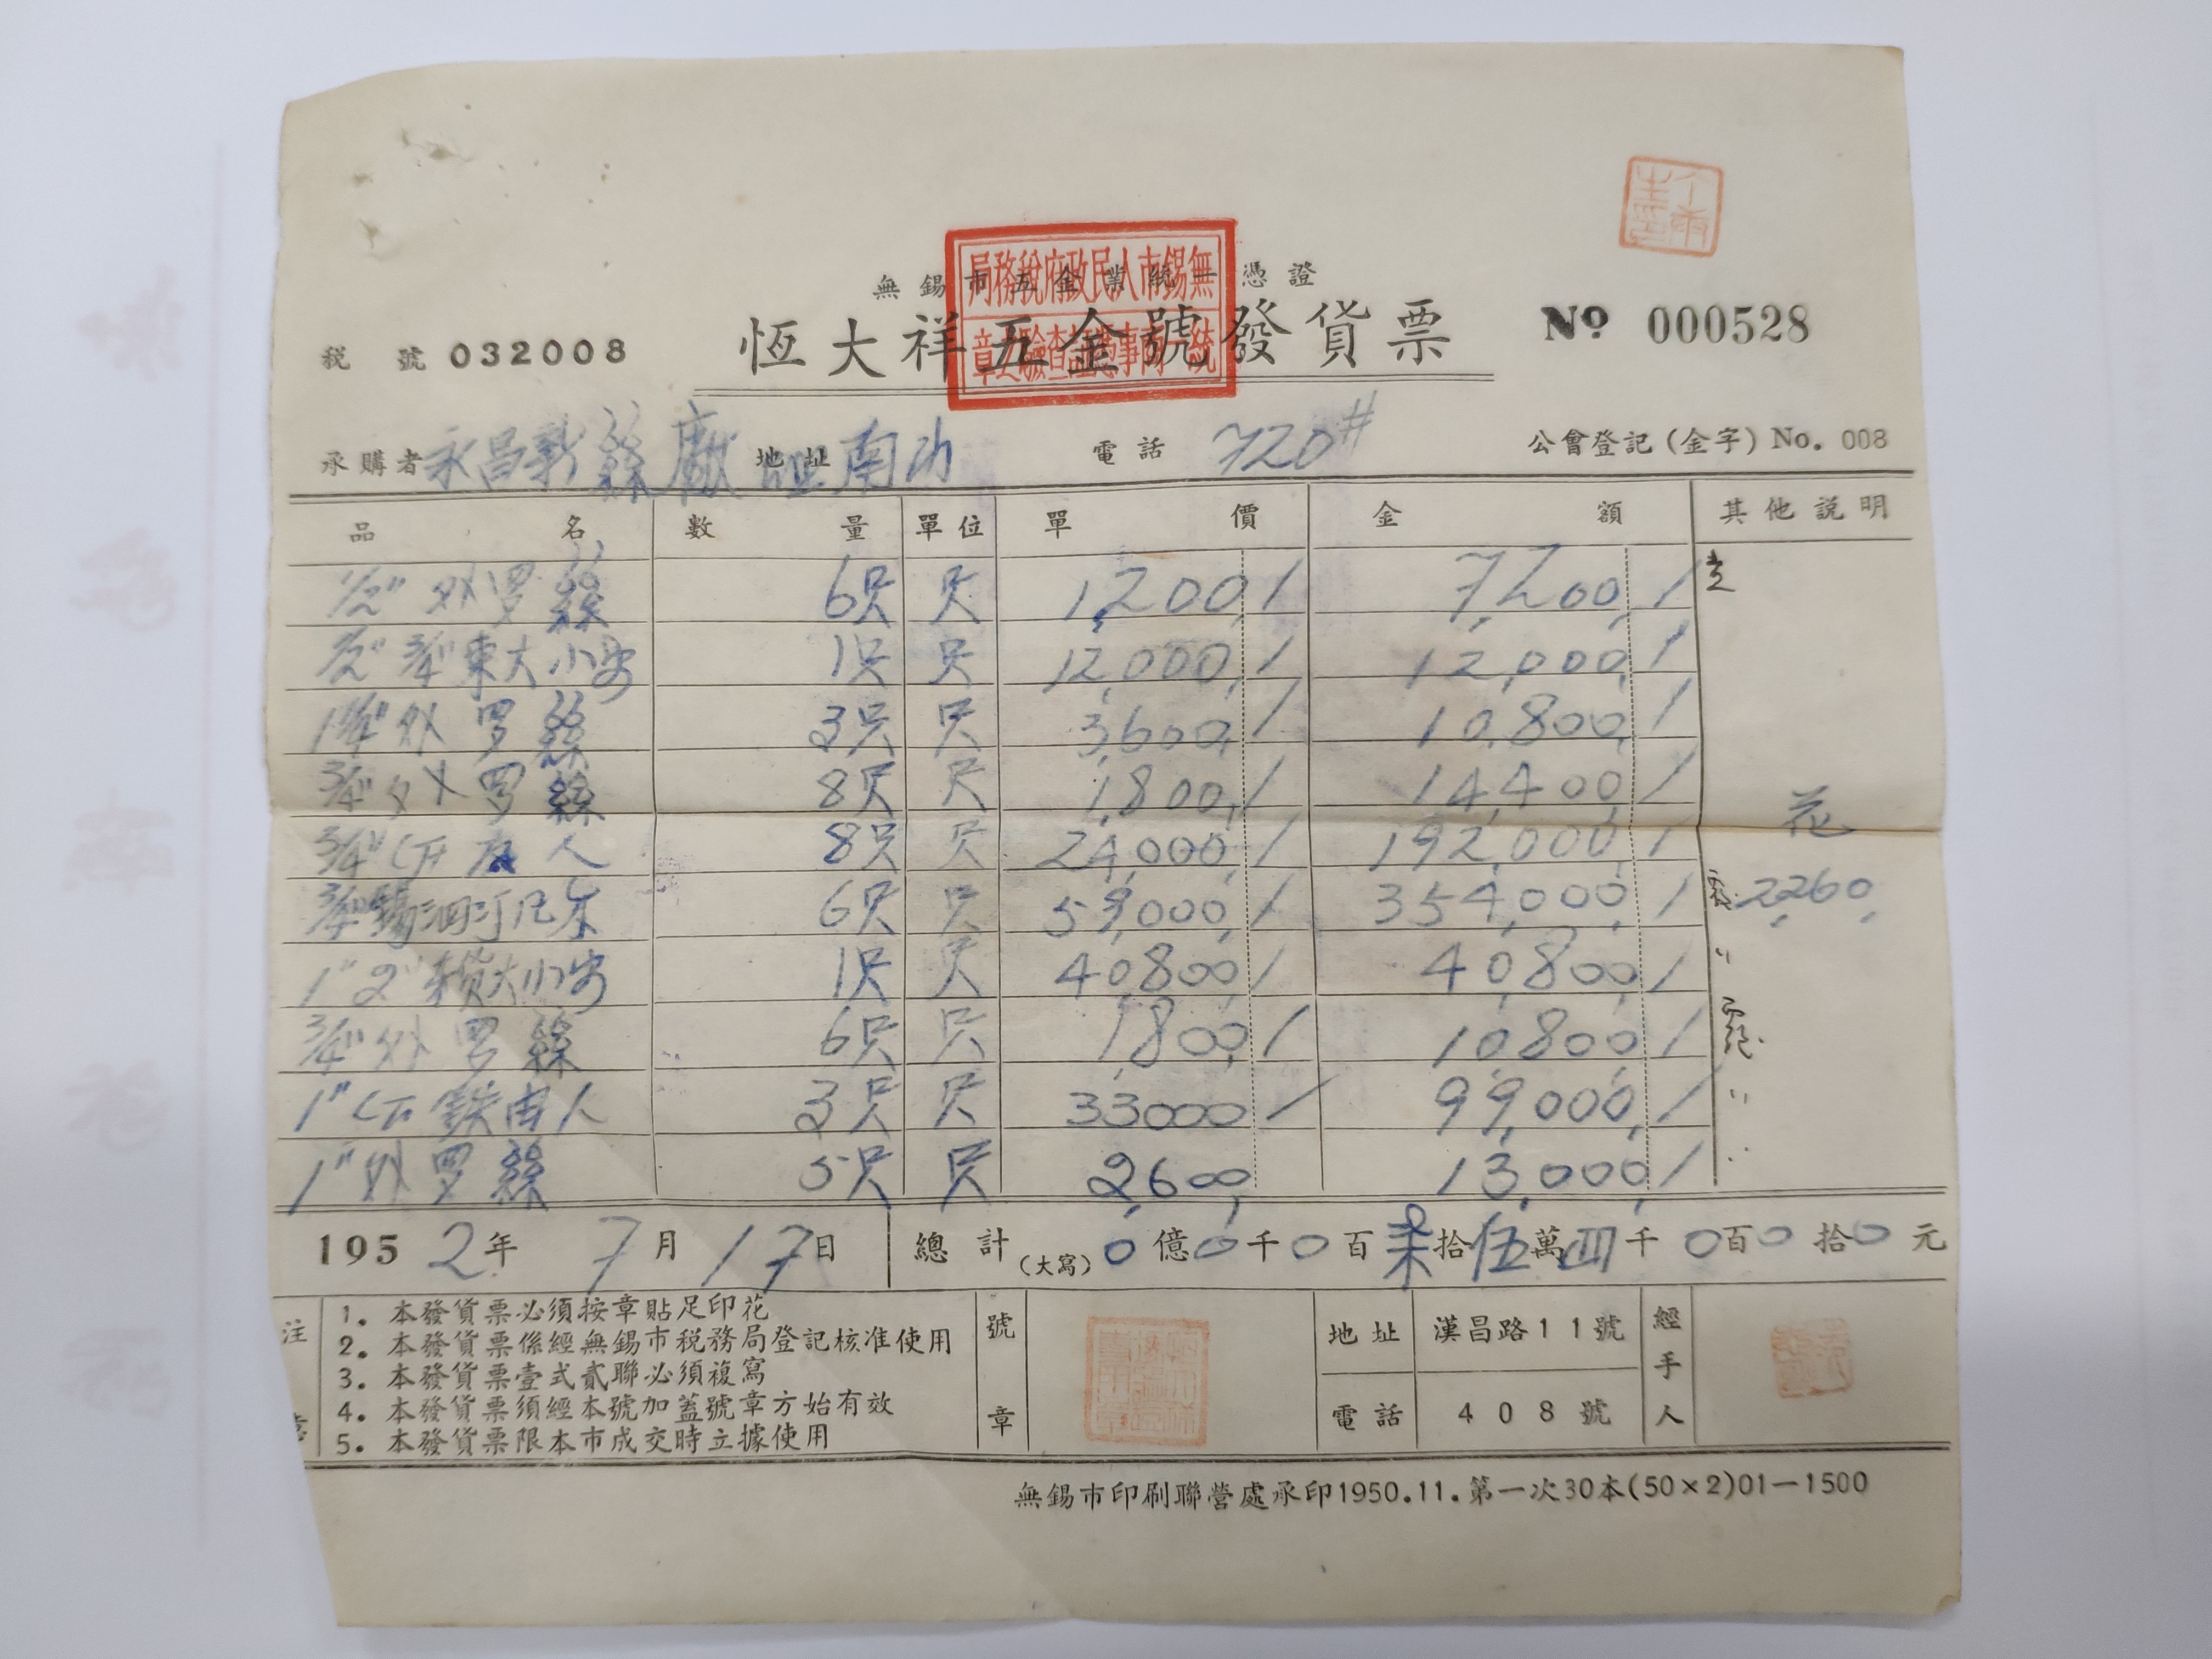 無錫市五金業統一憑證
無錫市人民政府稅務局
統一商事憑証查驗之章
恆大祥五金號發貨票
№ 000528
稅號 032008
承購者 永昌新絲廠 地址 南 電話 720# 公會登記(金字) No. 008
品名 數量 單位 單價 金額 其他說明
1/2" 外罗絲 6只 只 1,200,/ 7,200,/
1/2" 3/4" 東大小 1只 只 12,000,/ 12,000,/
1 1/4" 外罗絲 3只 只 3,600,/ 10,800,/
3/4" 外罗絲 8只 只 1,800,/ 14,400,/ 花
3/4" 人 8只 只 24,000,/ 192,000,/
3/4" 6只 只 59,000,/ 354,000,/ 2,260,
1" 2" 大小 1只 只 40,800,/ 40,800,/ "
3/4" 外罗絲 6只 只 1,800,/ 10,800,/
1" 鉄由人 3只 只 33000/ 99,000,/ "
1" 外罗絲 5只 只 2,600, 13,000,/ "
1952年7月17日 總計(大寫) 0億0千0百柒拾伍萬四千0百0拾0元
注意
1. 本發貨票必須按章貼足印花
2. 本發貨票係經無錫市稅務局登記核准使用
3. 本發貨票壹式貳聯必須複寫
4. 本發貨票須經本號加蓋號章方始有效
5. 本發貨票限本市成交時立據使用
號章
地址 漢昌路11號
電話 408號
經手人
無錫市印刷聯營處承印1950.11.第一次30本(50×2)01—1500